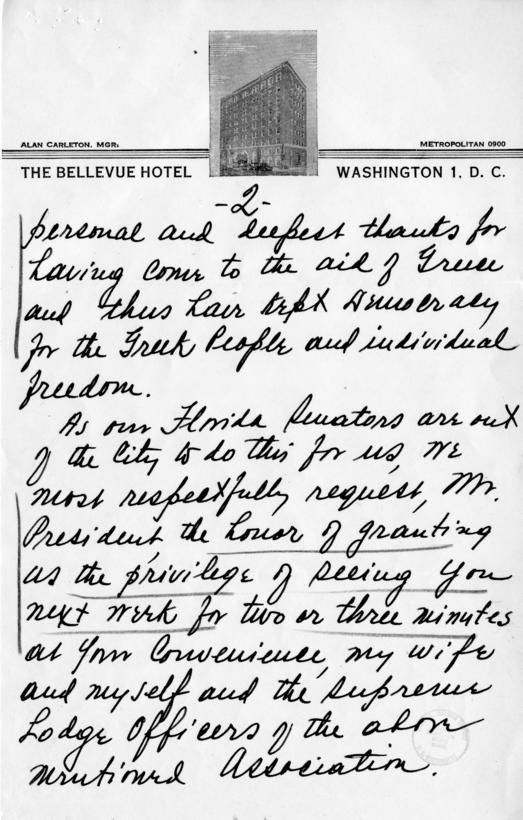 ALAN CARLETON, MGR.
METROPOLITAN 0900
THE BELLEVUE HOTEL
WASHINGTON 1, D. C.
-2-
personal and deepest thanks for
having come to the aid of Greece
and thus have kept Democracy
for the Greek People and individual
freedom.
As our Florida Senators are out
of the City to do this for us, we
most respectfully request, Mr.
President, the honor of granting
us the privilege of seeing you
next week for two or three minutes
at your convenience, my wife
and myself and the Supreme
Lodge Officers of the above
mentioned Association.